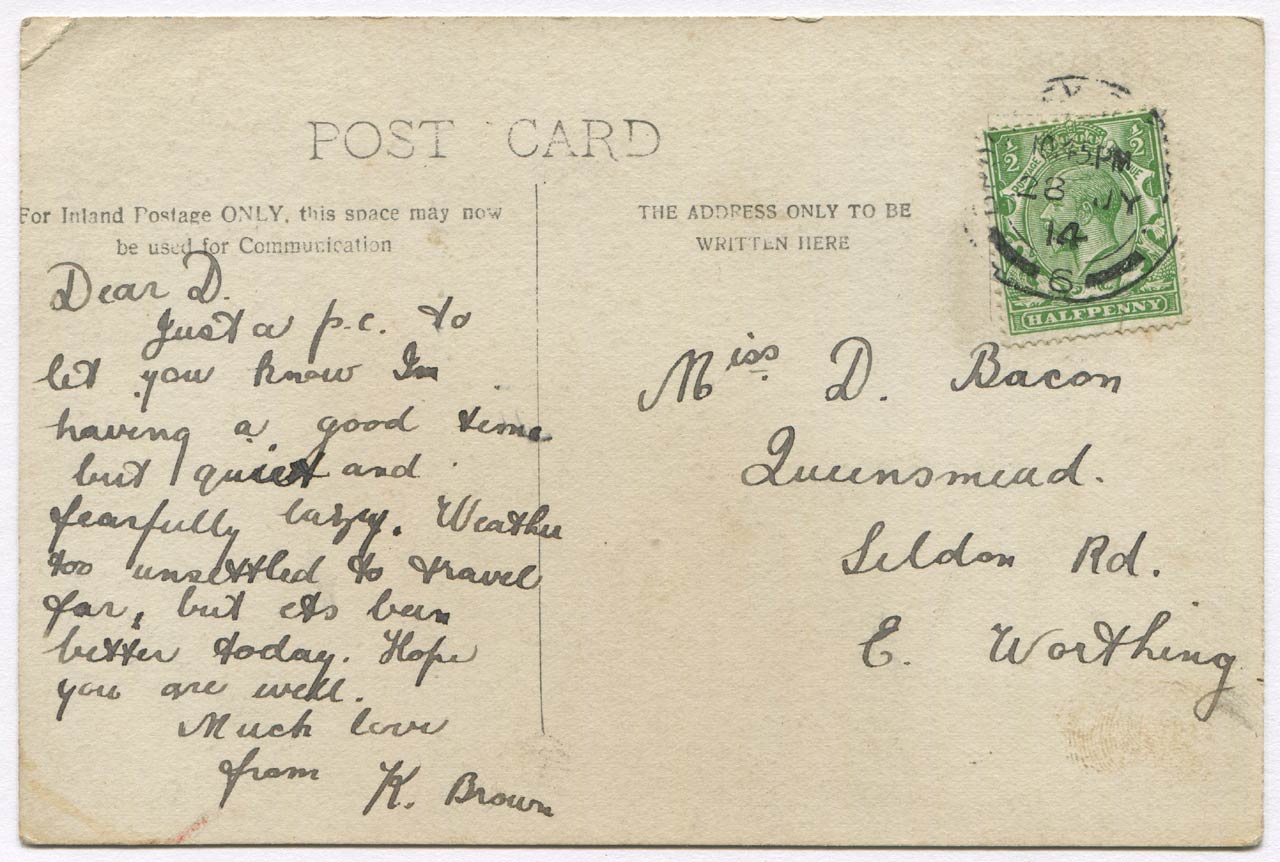 POST CARD
For Inland Postage ONLY, this space may now
be used for Communication
THE ADDRESS ONLY TO BE
WRITTEN HERE
Dear D.
Just a p.c. to
let you know Im
having a good time
but quiet and
fearfully lazy. Weather
too unsettled to travel
far, but its been
better today. Hope
you are well.
Much love
from K. Brown
½ ½
POSTAGE
HALFPENNY
PM
28 JY
14
6
Miss D. Bacon
Queensmead.
Seldon Rd.
E. Worthing